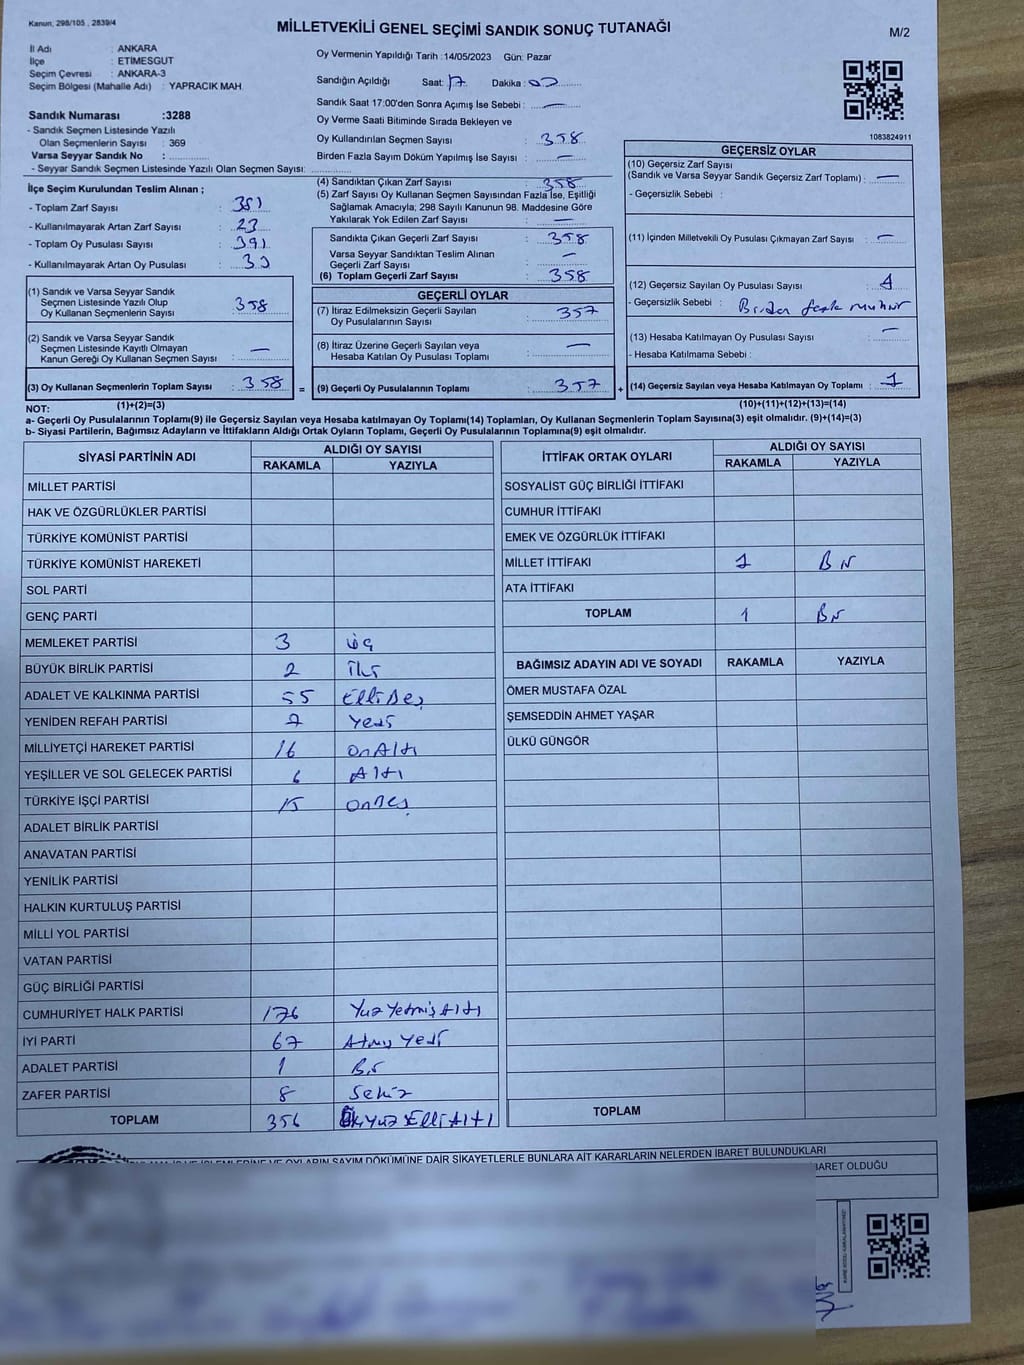 Kanun, 298/105 , 2839/4
MİLLETVEKİLİ GENEL SEÇİMİ SANDIK SONUÇ TUTANAĞI
M/2
İl Adı : ANKARA
İlçe : ETİMESGUT
Seçim Çevresi : ANKARA-3
Seçim Bölgesi (Mahalle Adı) : YAPRACIK MAH.
Sandık Numarası :3288
- Sandık Seçmen Listesinde Yazılı
Olan Seçmenlerin Sayısı : 369
Varsa Seyyar Sandık No :
- Seyyar Sandık Seçmen Listesinde Yazılı Olan Seçmen Sayısı:
Oy Vermenin Yapıldığı Tarih :14/05/2023 Gün: Pazar
Sandığın Açıldığı Saat: 17 Dakika :
Sandık Saat 17:00'den Sonra Açımış İse Sebebi : —
Oy Verme Saati Bitiminde Sırada Bekleyen ve
Oy Kullandırılan Seçmen Sayısı : 358
Birden Fazla Sayım Döküm Yapılmış İse Sayısı : —
1083824911
İlçe Seçim Kurulundan Teslim Alınan ;
- Toplam Zarf Sayısı : 381
- Kullanılmayarak Artan Zarf Sayısı : 23
- Toplam Oy Pusulası Sayısı : 391
- Kullanılmayarak Artan Oy Pusulası : 33
(1) Sandık ve Varsa Seyyar Sandık
Seçmen Listesinde Yazılı Olup
Oy Kullanan Seçmenlerin Sayısı : 358
(2) Sandık ve Varsa Seyyar Sandık
Seçmen Listesinde Kayıtlı Olmayan
Kanun Gereği Oy Kullanan Seçmen Sayısı : —
(3) Oy Kullanan Seçmenlerin Toplam Sayısı : 358 =
(1)+(2)=(3)
(4) Sandıktan Çıkan Zarf Sayısı : 358
(5) Zarf Sayısı Oy Kullanan Seçmen Sayısından Fazla İse, Eşitliği
Sağlamak Amacıyla; 298 Sayılı Kanunun 98. Maddesine Göre
Yakılarak Yok Edilen Zarf Sayısı : —
Sandıkta Çıkan Geçerli Zarf Sayısı : 358
Varsa Seyyar Sandıktan Teslim Alınan
Geçerli Zarf Sayısı : —
(6) Toplam Geçerli Zarf Sayısı : 358
GEÇERLİ OYLAR
(7) İtiraz Edilmeksizin Geçerli Sayılan
Oy Pusulalarının Sayısı : 357
(8) İtiraz Üzerine Geçerli Sayılan veya
Hesaba Katılan Oy Pusulası Toplamı : —
(9) Geçerli Oy Pusulalarının Toplamı : 357 +
GEÇERSİZ OYLAR
(10) Geçersiz Zarf Sayısı
(Sandık ve Varsa Seyyar Sandık Geçersiz Zarf Toplamı) : —
- Geçersizlik Sebebi :
(11) İçinden Milletvekili Oy Pusulası Çıkmayan Zarf Sayısı : —
(12) Geçersiz Sayılan Oy Pusulası Sayısı : 1
- Geçersizlik Sebebi : Birden fazla mühür
(13) Hesaba Katılmayan Oy Pusulası Sayısı : —
- Hesaba Katılmama Sebebi :
(14) Geçersiz Sayılan veya Hesaba Katılmayan Oy Toplamı : 1
(10)+(11)+(12)+(13)=(14)
NOT:
a- Geçerli Oy Pusulalarının Toplamı(9) ile Geçersiz Sayılan veya Hesaba katılmayan Oy Toplamı(14) Toplamları, Oy Kullanan Seçmenlerin Toplam Sayısına(3) eşit olmalıdır. (9)+(14)=(3)
b- Siyasi Partilerin, Bağımsız Adayların ve İttifakların Aldığı Ortak Oyların Toplamı, Geçerli Oy Pusulalarının Toplamına(9) eşit olmalıdır.
SİYASİ PARTİNİN ADI ALDIĞI OY SAYISI
RAKAMLA YAZIYLA
MİLLET PARTİSİ
HAK VE ÖZGÜRLÜKLER PARTİSİ
TÜRKİYE KOMÜNİST PARTİSİ
TÜRKİYE KOMÜNİST HAREKETİ
SOL PARTİ
GENÇ PARTİ
MEMLEKET PARTİSİ 3 üç
BÜYÜK BİRLİK PARTİSİ 2 İki
ADALET VE KALKINMA PARTİSİ 55 Elli Beş
YENİDEN REFAH PARTİSİ 7 Yedi
MİLLİYETÇİ HAREKET PARTİSİ 16 on Altı
YEŞİLLER VE SOL GELECEK PARTİSİ 6 Altı
TÜRKİYE İŞÇİ PARTİSİ 15 onBeş
ADALET BİRLİK PARTİSİ
ANAVATAN PARTİSİ
YENİLİK PARTİSİ
HALKIN KURTULUŞ PARTİSİ
MİLLİ YOL PARTİSİ
VATAN PARTİSİ
GÜÇ BİRLİĞİ PARTİSİ
CUMHURİYET HALK PARTİSİ 176 Yüz Yetmiş Altı
İYİ PARTİ 67 Atmış Yedi
ADALET PARTİSİ 1 Bir
ZAFER PARTİSİ 8 Sekiz
TOPLAM 356 ÜçYüz Elli Altı
İTTİFAK ORTAK OYLARI ALDIĞI OY SAYISI
RAKAMLA YAZIYLA
SOSYALİST GÜÇ BİRLİĞİ İTTİFAKI
CUMHUR İTTİFAKI
EMEK VE ÖZGÜRLÜK İTTİFAKI
MİLLET İTTİFAKI 1 Bir
ATA İTTİFAKI
TOPLAM 1 Bir
BAĞIMSIZ ADAYIN ADI VE SOYADI RAKAMLA YAZIYLA
ÖMER MUSTAFA ÖZAL
ŞEMSEDDİN AHMET YAŞAR
ÜLKÜ GÜNGÖR
TOPLAM
OYLARIN SAYIM DÖKÜMÜNE DAİR ŞİKAYETLERLE BUNLARA AİT KARARLARIN NELERDEN İBARET BULUNDUKLARI
İBARET OLDUĞU